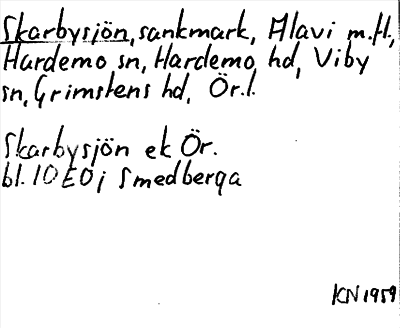 Skarbysjön, sankmark, Alavi m.fl.,
Hardemo sn, Hardemo hd, Viby
sn, Grimstens hd, Ör.l.
Skarbysjön ek Ör.
bl. 10E0j Smedberga
KN 1959